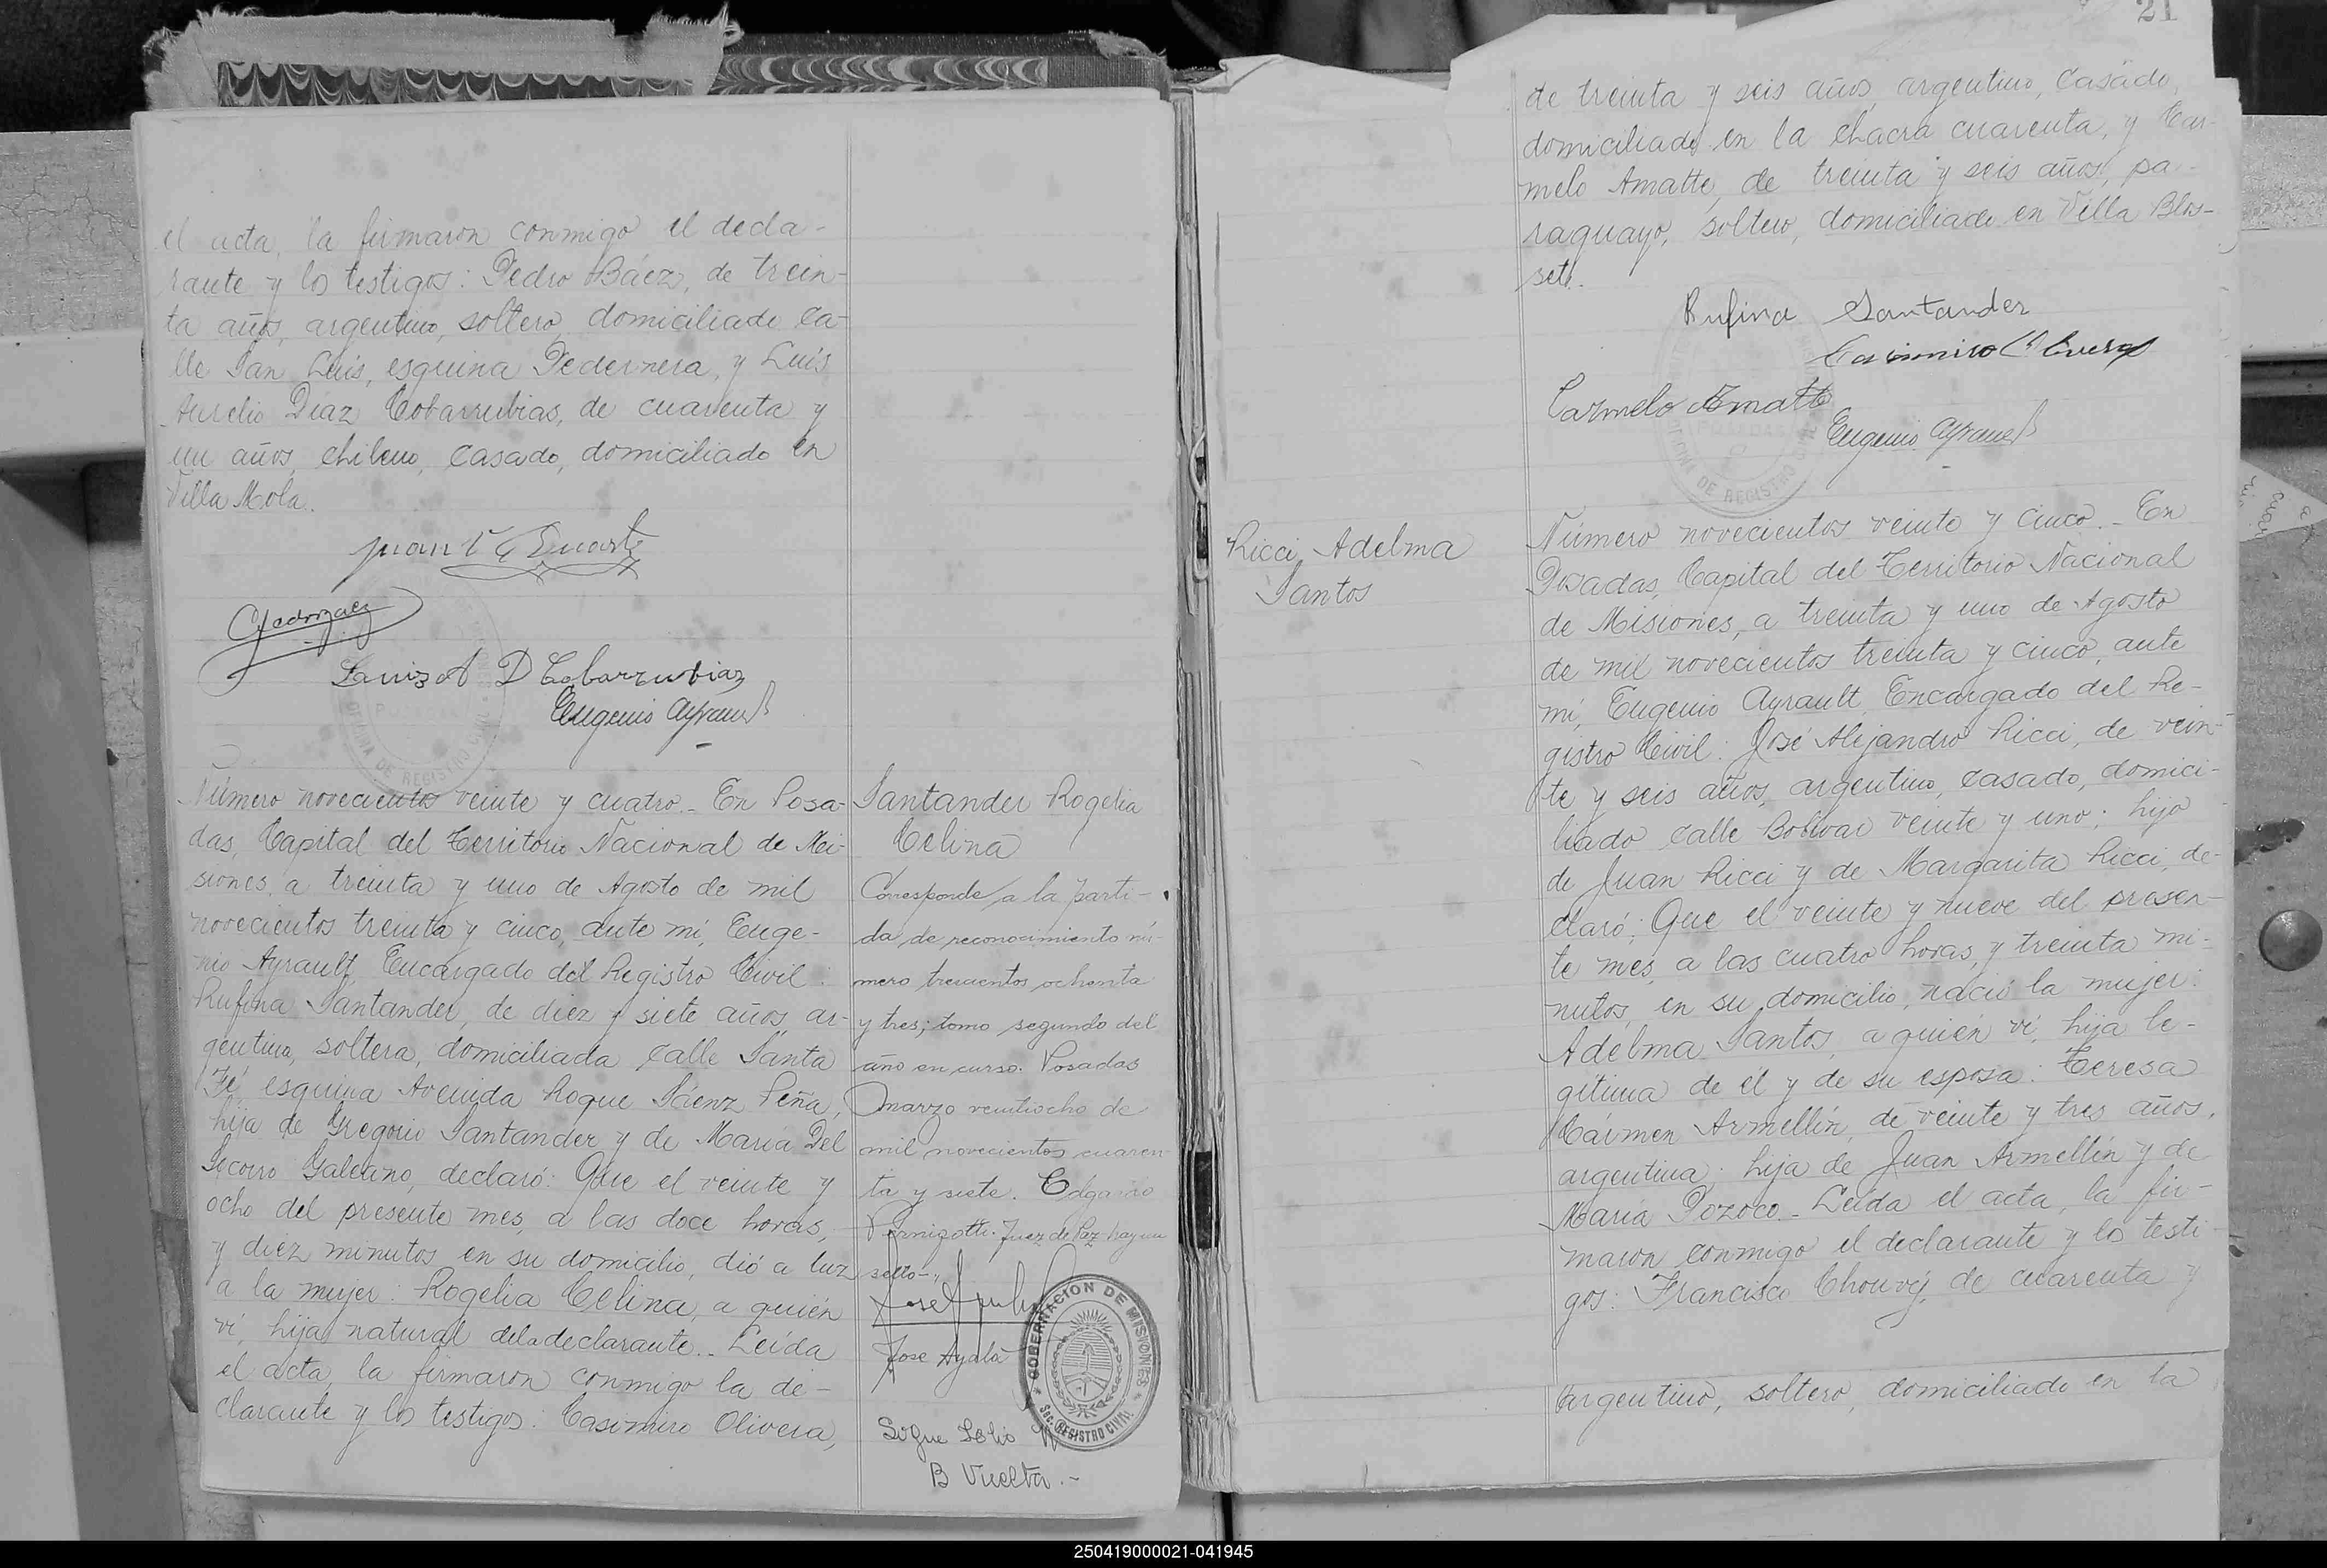 el acta, la firmaron conmigo el decla-
rante y los testigos: Pedro Báez, de trein-
ta años, argentino, soltero, domiciliado ca-
lle San Luis, esquina Pedernera, y Luis
Aurelio Díaz Cobarrubias, de cuarenta y
un años, chileno, casado, domiciliado en
Villa Mola.
Luis A D Cobarrubias
Eugenio Ayrault
Número novecientos veinte y cuatro.- En Posa-
das, Capital del Territorio Nacional de Mi-
siones, a treinta y uno de Agosto de mil
novecientos treinta y cinco, ante mí, Euge-
nio Ayrault, Encargado del Registro Civil:
Rufina Santander, de diez y siete años, ar-
gentina, soltera, domiciliada calle Santa
Fé, esquina Avenida Roque Sáenz Peña,
hija de Gregorio Santander y de María Del
Socorro Galeano, declaró: Que el veinte y
ocho del presente mes, a las doce horas,
y diez minutos en su domicilio, dió a luz
a la mujer: Rogelia Celina, a quién
ví, hija natural de la declarante.- Leída
el acta, la firmaron conmigo la de-
clarante y los testigos: Casimiro Olivera,
Santander Rogelia
Celina
Corresponde a la parti-
da de reconocimiento nú-
mero trescientos ochenta
y tres; tomo segundo del
año en curso. Posadas
marzo veintiocho de
mil novecientos cuaren
ta y siete. Edgardo
Vernizotti. Juez de Paz hay un
sello-"
Jose Ayala
GOBERNACION DE MISIONES
Sec. REGISTRO CIVIL
Sigue Folio
B Vuelta.-
21
de treinta y seis años, argentino, casado,
domiciliado en la chacra cuarenta, y Car-
melo Amatte, de treinta y seis años, pa-
raguayo, soltero, domiciliado en Villa Blos-
set.
Rufina Santander
Casimiro Olivera
Carmelo Amatte
Eugenio Ayrault
POSADAS
OFICINA DE REGISTRO CIVIL
Ricci, Adelma
Santos
Número novecientos veinte y cinco.- En
Posadas, Capital del Territorio Nacional
de Misiones, a treinta y uno de Agosto
de mil novecientos treinta y cinco, ante
mí, Eugenio Ayrault, Encargado del Re-
gistro Civil: José Alejandro Ricci, de vein-
te y seis años, argentino, casado, domici-
liado calle Bolívar veinte y uno; hijo
de Juan Ricci y de Margarita Ricci, de-
claró: Que el veinte y nueve del presen-
te mes, a las cuatro horas, y treinta mi-
nutos, en su domicilio, nació la mujer:
Adelma Santos, a quién ví, hija le-
gítima de él y de su esposa: Teresa
Cármen Armellín, de veinte y tres años,
argentina; hija de Juan Armellín y de
María Pozoco.- Leída el acta, la fir-
maron conmigo el declarante y los testi-
gos: Francisco Chouvy, de cuarenta y
argentino, soltero, domiciliado en la
250419000021-041945